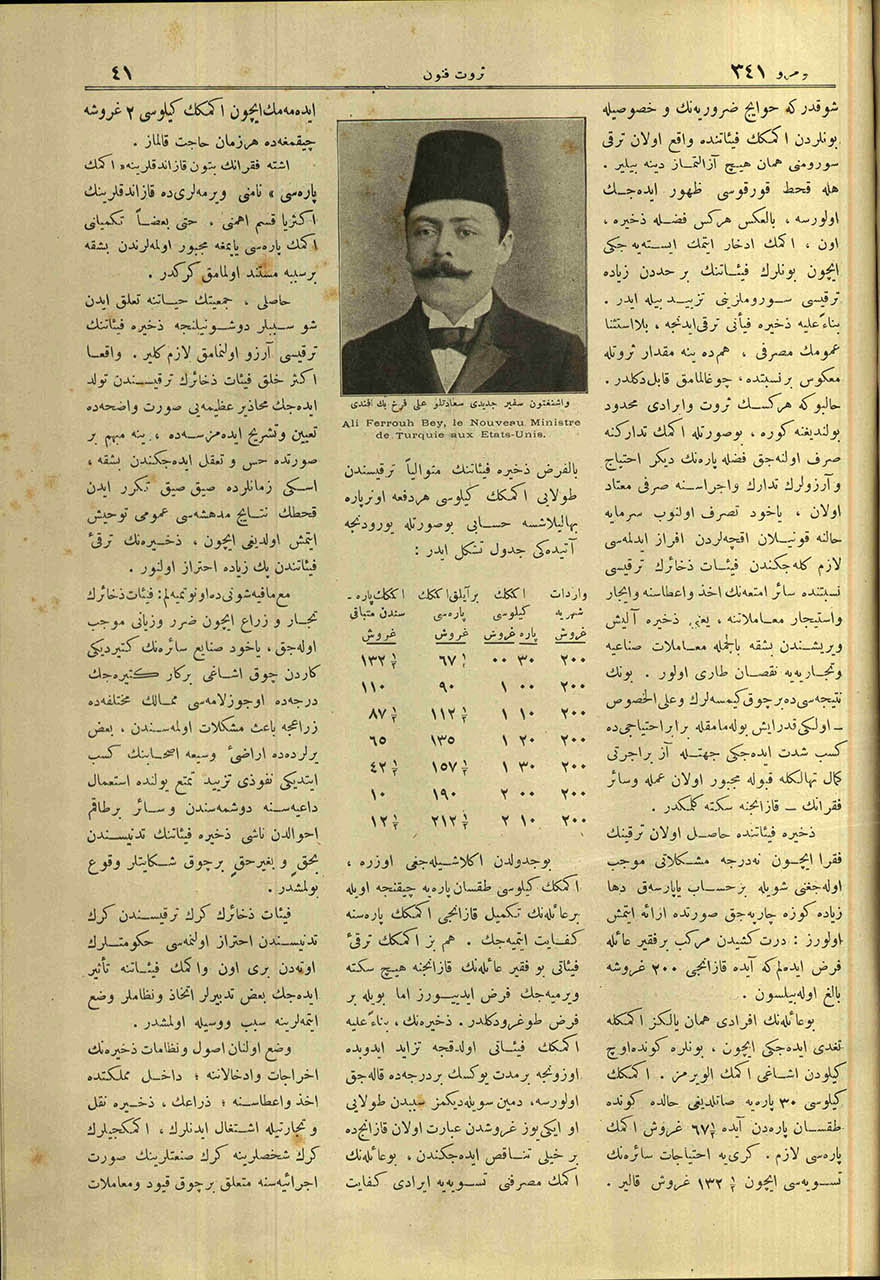 نومرو ٣٤١
ثروت فنون
٤١
شوقدر که حوایج ضروریه‌نك و خصوصیله
بونلردن اکمکك فیئاتنده واقع اولان ترقی
سورومنی همان هیچ آزالتماز دینه بیلیر .
هله قحط قورقوسی ظهور ایده‌جك
اولورسه ، بالعکس هرکس فضله ذخیره ،
اون ، اکمك ادخار ایتمك ایسته‌یه‌جکی
ایچون بونلرك فیئاتنك بر حددن زیاده
ترقیسی سوروملرینی تزیید بیله ایدر .
بناءً علیه ذخیره فیأتی ترقی ایدنجه ، بلااستثنا
عمومك مصرفی ، هم‌ده ینه مقدار ثروتله
معکوس بر نسبتده ، چوغالمامق قابل دکلدر .
حالبوکه هرکسك ثروت وایرادی محدود
بولندیغنه کوره ، بوصورتله اکمك تدارکنه
صرف اولنه‌جق فضله پاره‌نك دیکر احتیاج
وآرزولرك تدارك واجراسنه صرفی معتاد
اولان ، یاخود تصرف اولنوب سرمایه
حالنه قونیلان اقچه‌لردن افراز ایدلمه‌سی
لازم کله‌جکندن فیئات ذخائرك ترقیسی
نسبتنده سائر امتعه‌نك اخذ واعطاسنه وایجار
واستیجار معاملاتنه ، یعنی ذخیره آلیش
ویریشندن بشقه بالجمله معاملات صناعیه
وتجاریه‌یه نقصان طاری اولور . بونك
نتیجه‌سی‌ده برچوق کیمسه‌لرك وعلی الخصوص
ـ اولکی قدر ایش بوله‌مامقله برابر احتیاجی‌ده
کسب شدت ایده‌جکی جهتله آز بر اجرتی
کمال تهالکله قبوله مجبور اولان عمله وسائر
فقرانك ـ قازانجنه سکته کلمکدر .
ذخیره فیئاتنده حاصل اولان ترقینك
فقرا ایچون نه‌درجه مشکلاتی موجب
اوله‌جغنی شویله بر حساب یاپارسه‌ق دها
زیاده کوزه چارپه‌جق صورتده ارائه ایتمش
اولورز : درت کشیدن مرکب بر فقیر عائله
فرض ایده‌لم که آیده قازانجی ٢٠٠ غروشه
بالغ اوله‌بیلسون .
بوعائله‌نك افرادی همان یالکز اکمکله
تغدی ایده‌جکی ایچون ، بونلره کونده‌اوچ
کیلودن اشاغی اکمك الویرمز . اکمکك
کیلوسی ٣٠ پاره‌یه صاتلدیغی حالده کونده
طقسان پاره‌دن آیده ٦٧ ١/٢ غروش اکمك
پاره‌سی لازم . کری‌یه احتیاجات سائره‌نك
تسویه‌سی ایچون ١٣٢ ١/٢ غروش قالیر .
واشنغتون سفیر جدیدی سعادتلو علی فرخ بك افندی
Ali Ferrouh Bey, le Nouveau Ministre
de Turquie aux Etats-Unis.
بالفرض ذخیره فیئاتنك متوالیاً ترقیسندن
طولایی اکمکك کیلوسی هردفعه اونرپاره
بهالیلاشسه حسابی بوصورتله یورودنجه
آتیده‌کی جدول تشکل ایدر :
واردات اکمکك برآیلق اکمك اکمك پاره ـ
شهریه کیلوسی پاره‌سی سندن متباقی
غروش پاره غروش غروش غروش
٢٠٠ ٣٠ ٠٠ ٦٧ ١/٢ ١٣٢ ١/٢
٢٠٠ ٠٠ ١ ٩٠ ١١٠
٢٠٠ ١٠ ١ ١١٢ ١/٢ ٨٧ ١/٢
٢٠٠ ٢٠ ١ ١٣٥ ٦٥
٢٠٠ ٣٠ ١ ١٥٧ ١/٢ ٤٢ ١/٢
٢٠٠ ٠٠ ٢ ١٩٠ ١٠
٢٠٠ ١٠ ٢ ٢١٢ ١/٢ ١٢ ١/٢
بوجدولدن اکلاشیله‌جغی اوزره ،
اکمکك کیلوسی طقسان پاره‌یه چیقنجه اویله
برعائله‌نك تکمیل قازانجی اکمك پاره‌سنه
کفایت ایتمیه‌جك . هم بز اکمکك ترقیٔ
فیئاتی بو فقیر عائله‌نك قازانجنه هیچ سکته
ویرمیه‌جك فرض ایدییورز اما بویله بر
فرض طوغرودکلدر . ذخیره‌نك ، بناءً علیه
اکمکك فیئاتی اولدقجه تزاید ایدوبده
اوزونجه برمدت یوکسك بردرجه‌ده قاله‌جق
اولورسه ، دمین سویله‌دیکمز سببدن طولایی
او ایکی‌یوز غروشدن عبارت اولان قازانج‌ده
بر خیلی تناقص ایده‌جکندن ، بوعائله‌نك
اکمك مصرفنی تسویه‌یه ایرادی کفایت
ایده‌مه‌مك ایچون اکمکك کیلوسی ٢ غروشه
چیقمغه‌ده هرزمان حاجت قالماز .
اشته فقرانك بتون قازاندقلرینه « اکمك
پاره‌سی » نامنی ویرمه‌لری‌ده قازاندقلرینك
اکثریا قسم اهمنی ، حتی بعضاً تکمیلنی
اکمك پاره‌سی یاپمغه مجبور اولمه‌لرندن بشقه
برسببه مستند اولمامق کرکدر .
حاصلی ، جمعیتك حیاتنه تعلق ایدن
شو سببلر دوشونیلنجه ذخیره فیئاتنك
ترقیسی آرزو اولنمامق لازم کلیر . واقعا
اکثر خلق فیئات ذخائرك ترقیسندن تولد
ایده‌جك محاذیر عظیمه‌یی صورت واضحه‌ده
تعیین وتشریح ایده‌مزسه‌ده ، ینه مبهم بر
صورتده حس و تعقل ایده‌جکندن بشقه ،
اسکی زمانلرده صیق صیق تکرر ایدن
قحطك نتایج مدهشه‌سی عمومی توحیش
ایتمش اولدیغی ایچون ، ذخیره‌نك ترقیٔ
فیئاتندن پك زیاده احتراز اولنور .
مع مافیه شونی‌ده اونوتمیه‌لم : فیئات ذخائرك
تجار و زراع ایچون ضرر وزیانی موجب
اوله‌جق ، یاخود صنایع سائره‌نك کتیردیکی
کاردن چوق اشاغی برکار کتیره‌جك
درجه‌ده اوجوزلامه‌سی ممالك مختلفه‌ده
زراعجه باعث مشکلات اولمه‌سندن ، بعض
برلرده‌ده اراضیٔ وسیعه اصحابنك کسب
ایتدیکی نفوذی تزیید تمتع یولنده استعمال
داعیه‌سنه دوشمه‌سندن و سائر برطاقم
احوالدن ناشی ذخیره فیئاتنك تدنیسندن
بحق و بغیرحق برچوق شکایتلر وقوع
بولمشدر .
فیئات ذخائرك کرك ترقیسندن کرك
تدنیسندن احتراز اولنمه‌سی حکومتلرك
اوته‌دن بری اون واکمك فیئاتنه تأثیر
ایده‌جك بعض تدبیرلر اتخاذ ونظاملر وضع
ایتمه‌لرینه سبب ووسیله اولمشدر .
وضع اولنان اصول ونظامات ذخیره‌نك
اخراجات وادخالاتنه ؛ داخل مملکتده
اخذ واعطاسنه ؛ ذراعك ، ذخیره نقل
و تجارتیله اشتغال ایدنلرك ، اکمکجیلرك
کرك شخصلرینه کرك صنعتلرینك صورت
اجرائیه‌سنه متعلق برچوق قیود ومعاملات